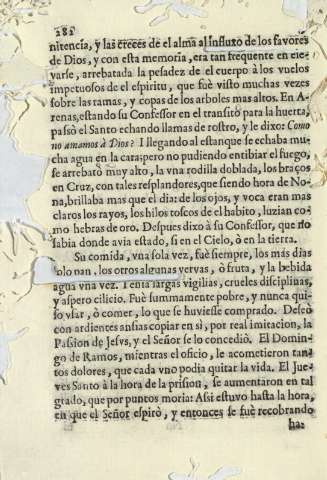 282
nitencia, y las creces de el alma al influxo de los favores
de Dios, y con esta memoria, era tan frequente en ele-
varse, arrebatada la pesadez de el cuerpo à los vuelos
impetuosos de el espiritu, que fuè visto muchas vezes
sobre las ramas, y copas de los arboles mas altos. En A-
renas, estando su Confessor en el transito para la huerta,
passò el Santo echando llamas de rostro, y le dixo: Como
no amamos à Dios? I llegando al estanque se echaba mu-
cha agua en la cara; pero no pudiendo entibiar el fuego,
se arrebatò muy alto, la vna rodilla doblada, los braços
en Cruz, con tales resplandores, que siendo hora de No-
na, brillaba mas que el dia: de los ojos, y voca eran mas
claros los rayos, los hilos toscos de el habito, luzian co-
mo hebras de oro. Despues dixo à su Confessor, que no
sabia donde avia estado, si en el Cielo, ò en la tierra.
Su comida, vna sola vez, fuè siempre, los más dias
solo pan, los otros algunas yervas, ò fruta, y la bebida
agua vna vez. Tenia largas vigilias, crueles disciplinas,
y aspero cilicio. Fuè summamente pobre, y nunca qui-
so vsar, ò comer, lo que se huviesse comprado. Deseò
con ardientes ansias copiar en si, por real imitacion, la
Passion de Jesvs, y el Señor se lo concediò. El Domin-
go de Ramos, mientras el oficio, le acometieron tan-
tos dolores, que cada vno podia quitar la vida. El Jue-
ves Santo à la hora de la prision, se aumentaron en tal
grado, que por puntos moria: Assi estuvo hasta la hora,
en que el Señor espirò, y entonces se fuè recobrando
ha-